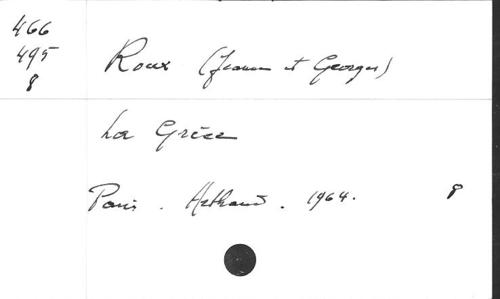 466
495
8
Roux (Jeanne et Georges)
La Grèce
Paris . Arthaud . 1964. 8